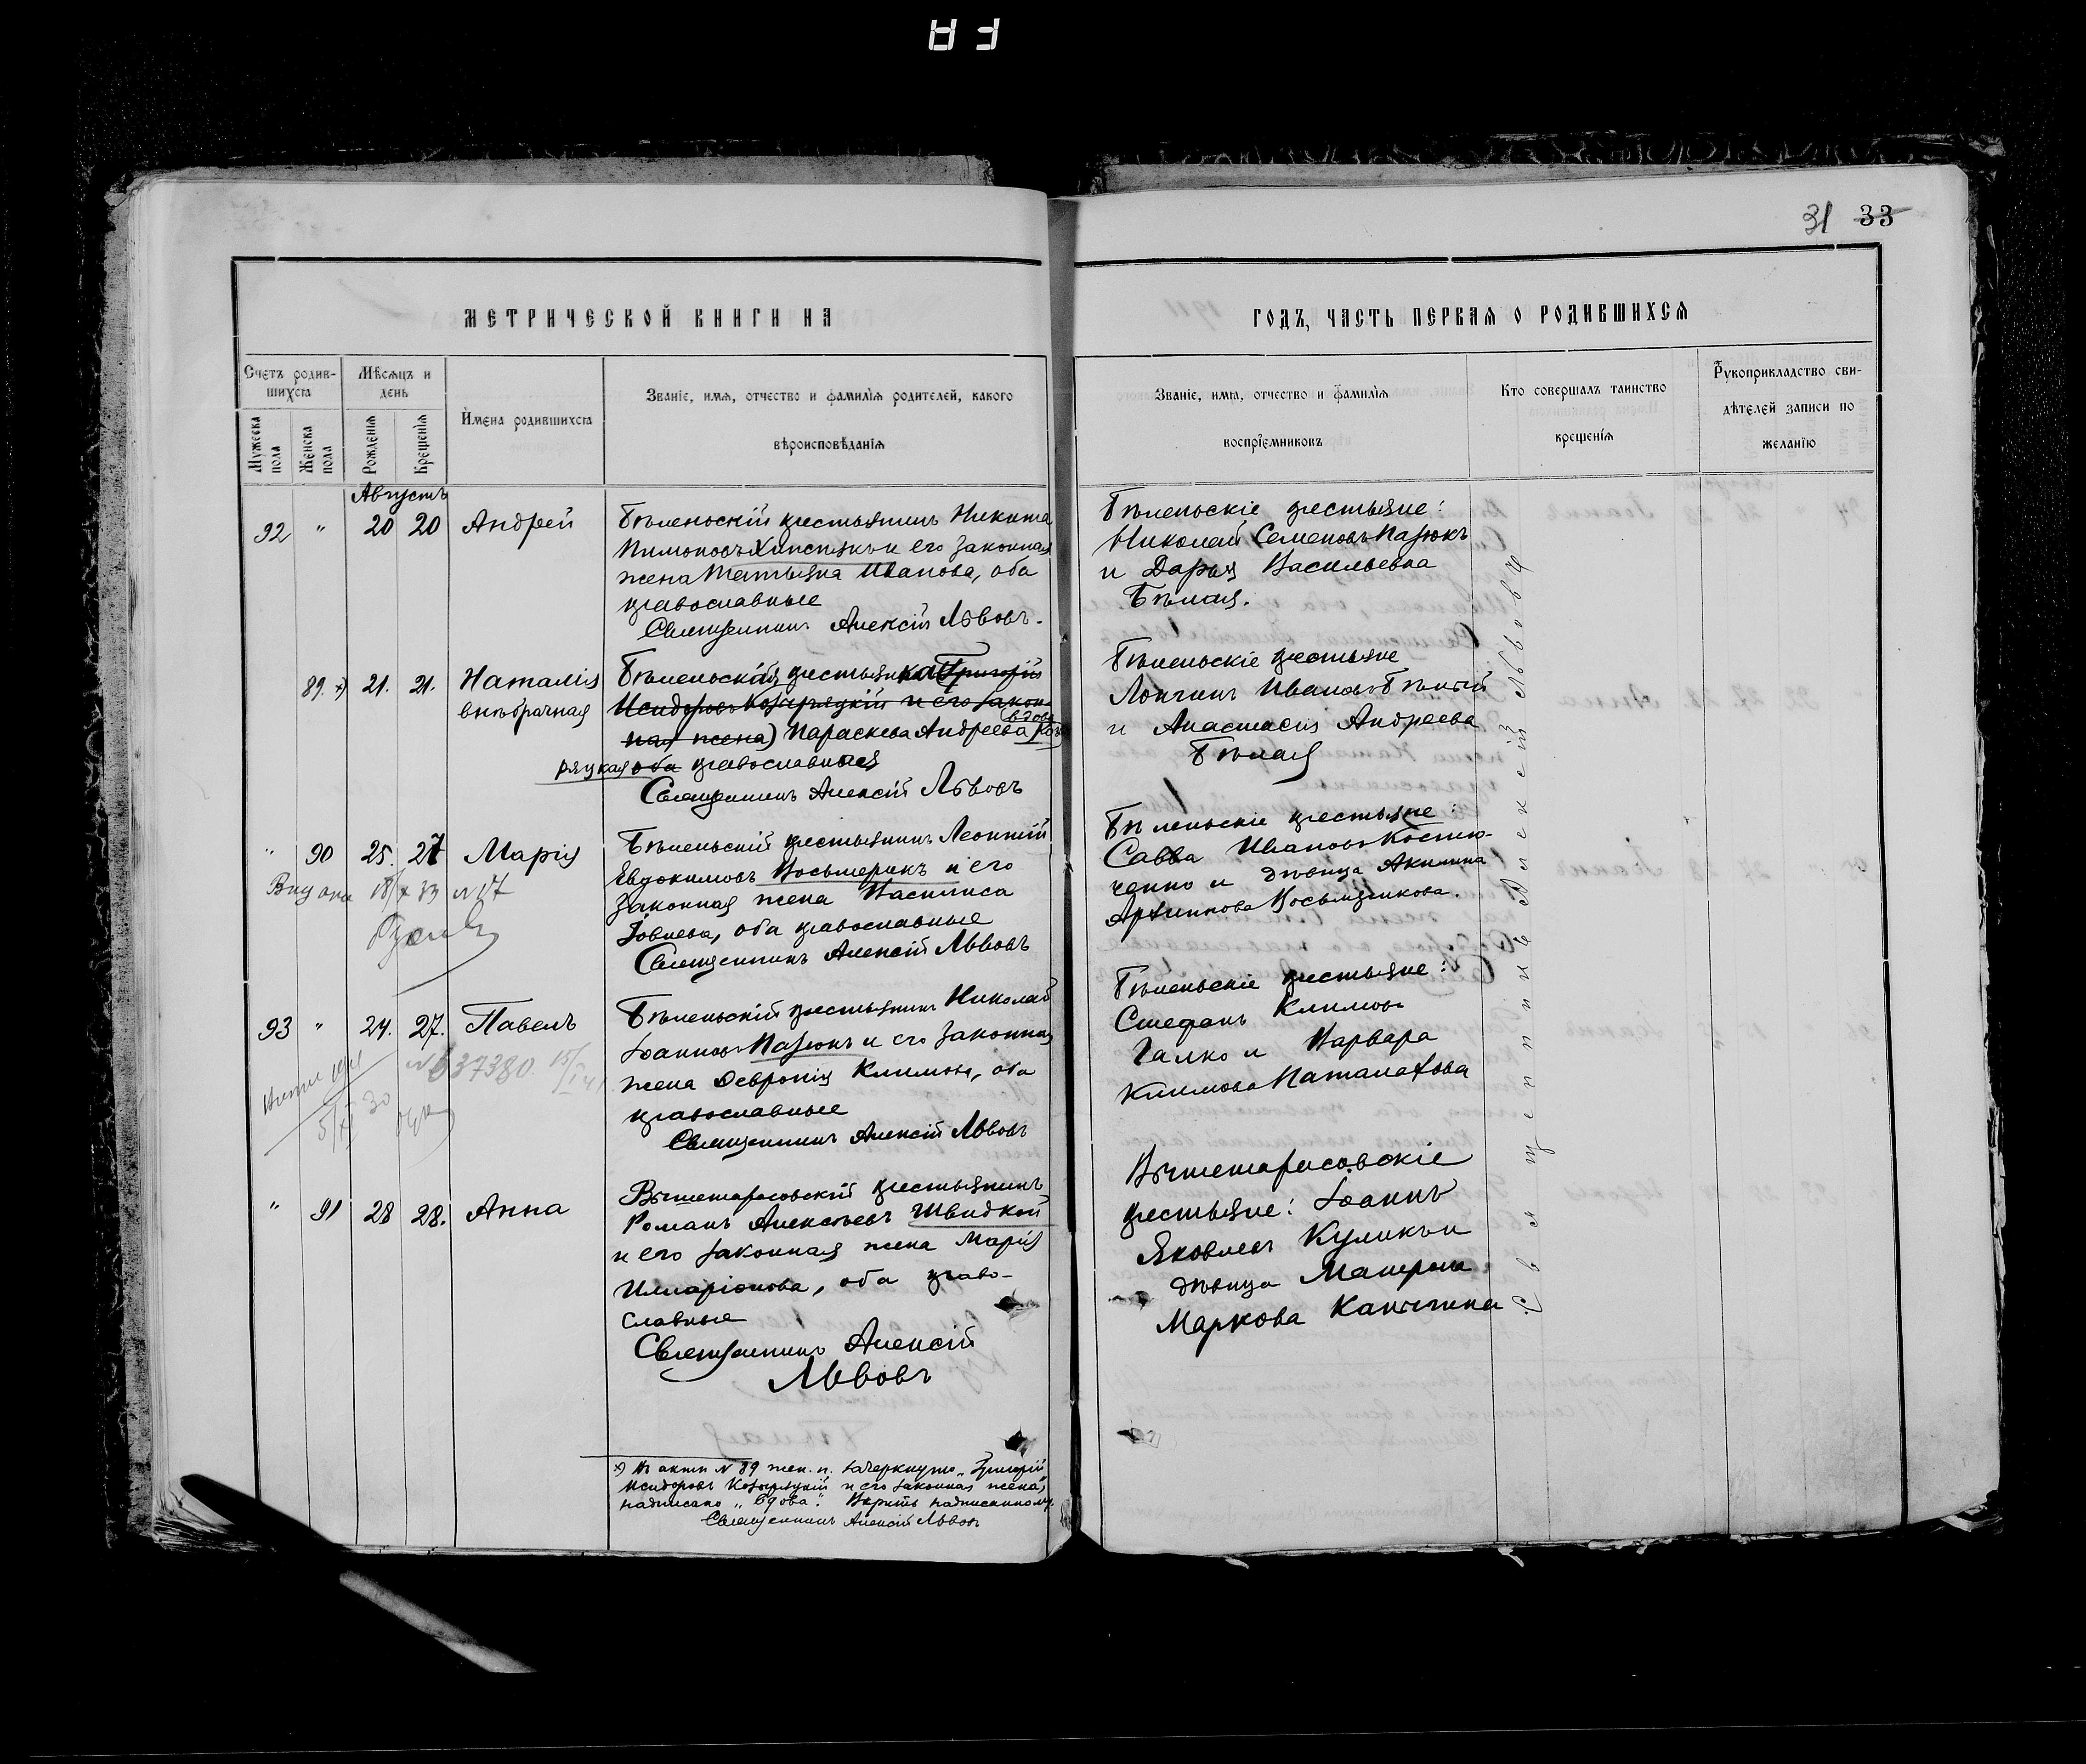 31 33
МЕТРИЧЕСКОЙ КНИГИ НА
ГОДЪ, ЧАСТЬ ПЕРВАЯ О РОДИВШИХСЯ
Счетъ родив-
шихся
Мѣсяцъ и
день
Имена родившихся
Званіе, имя, отчество и фамилія родителей, какого
вѣроисповѣданія
Мужеска пола
Женска пола
Рожденія
Крещенія
Званіе, имя, отчество и фамилія
воспріемниковъ
Кто совершалъ таинство
крещенія
Рукоприкладство сви-
дѣтелей записи по
желанію
Августъ
92 " 20 20 Андрей
Бѣленьскій крестьянинъ Никита
Пимоновъ и его законная
жена Татьяна Иванова, оба
православные
Священникъ Алексій Львовъ.
Бѣленьскіе крестьяне:
Николай Семеновъ Пазюкъ
и Дарья Васильевна
Бѣлая.
89. х) 21. 21. Наталія
внѣбрачная
Бѣленьская крестьянка (Григорій
Исидоровъ Козыряцкій и его закон-
ная жена) Параскева Андреева вдова Козы
ряцкая оба православная
Священникъ Алексій Львовъ
Бѣленьскіе крестьяне
Лонгинъ Ивановъ Бѣлый
и Анастасія Андреева
Бѣлая
" 90 25. 27 Марія
Бѣленьскій крестьянинъ Леонтій
Евдокимовъ Восьмерикъ и его
законная жена Васил��са
Іовлева, оба православные
Священникъ Алексій Львовъ
Бѣленьскіе крестьяне:
Савва Ивановъ Костю-
ченко и дѣвица Акилина
Восьмерикова.
№ 17
93 " 24. 27. Павелъ
Бѣленьскій крестьянинъ Николай
Іоанновъ Пазюкъ и его законная
жена Февронія Климова, оба
православные
Священникъ Алексій Львовъ
Бѣленьскіе крестьяне:
Стефанъ Климовъ
Галко и Варвара
Климова Паталахова
№ 637380
" 91 28 28. Анна
Вышетарасовскій крестьянинъ
Романъ Алексѣевъ Швидкой
и его законная жена Марія
Илларіонова, оба право-
славные
Священникъ Алексій
Львовъ
Вышетарасовскіе
крестьяне: Іоаннъ
Яковлевъ Куликъ и
дѣвица Матрона
Маркова
Священникъ Алексій Львовъ
х) Въ актѣ № 89 жен. п. зачеркнуто „Григорій
Исидоровъ Козыряцкій и его законная жена",
надписано „вдова". Вѣрить надписанному.
Священникъ Алексій Львовъ